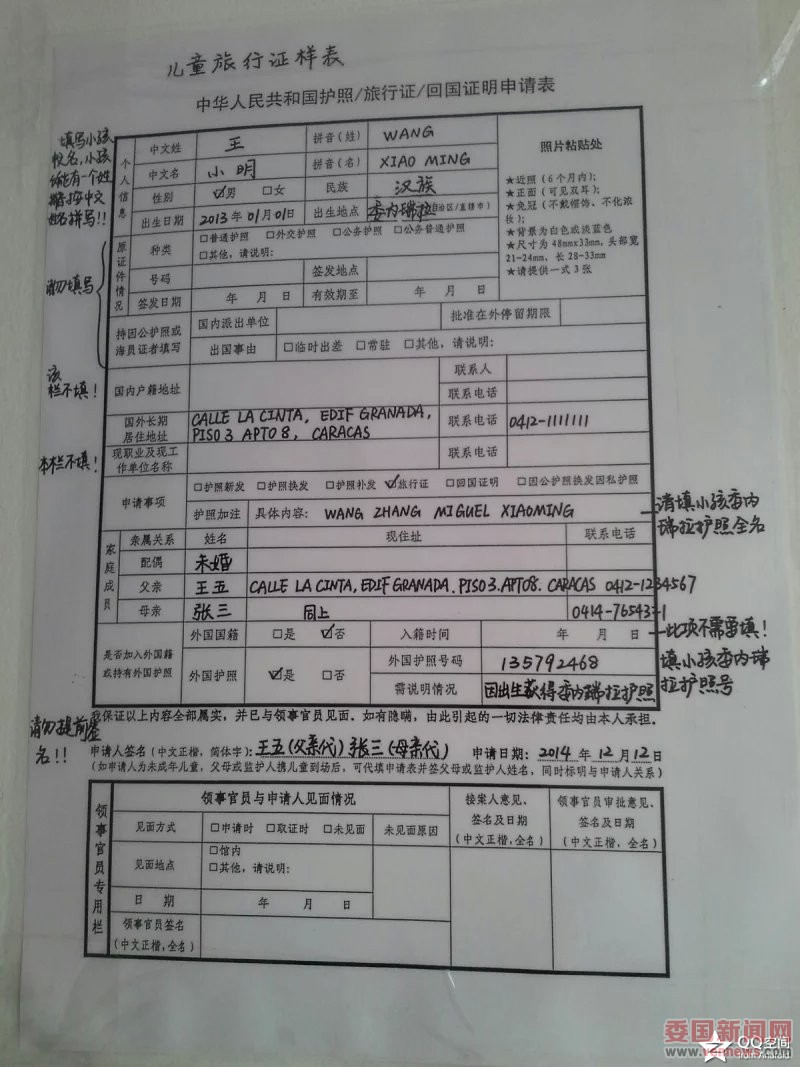 儿童旅行证样表
中华人民共和国护照/旅行证/回国证明申请表
填写小孩
校名,小孩
只能有一个姓
按中文
姓名拼写!!
个人信息
中文姓 王 拼音(姓) WANG
中文名 小明 拼音(名) XIAO MING
性别 ☑男 □女 民族 汉族
出生日期 2013年01月01日 出生地点 委内瑞拉(自治区/直辖市)
照片粘贴处
★近照(6个月内);
★正面(可见双耳);
★免冠(不戴帽饰、不化浓
妆);
★背景为白色或淡蓝色
★尺寸为48mm×33mm,头部宽
21-24mm、长28-33mm
★请提供一式3张
请勿填写
原证件情况
种类 □普通护照 □外交护照 □公务护照 □公务普通护照
□其他,请说明:
号码 签发地点
签发日期 年 月 日 有效期至 年 月 日
持因公护照或
海员证者填写
国内派出单位 批准在外停留期限
出国事由 □临时出差 □常驻 □其他,请说明:
该
栏不填!
国内户籍地址 联系人
联系电话
国外长期
居住地址
CALLE LA CINTA, EDIF GRANADA,
PISO 3 APTO 8, CARACAS
联系电话 0412-1111111
本栏不填!
现职业及现工
作单位名称
联系电话
申请事项 □护照新发 □护照换发 □护照补发 ☑旅行证 □回国证明 □因公护照换发因私护照
护照加注 具体内容: WANG ZHANG MIGUEL XIAOMING
请填小孩委内
瑞拉护照全名
家庭成员
亲属关系 姓名 现住址 联系电话
配偶 未婚
父亲 王五 CALLE LA CINTA, EDIF GRANADA. PISO 3. APTO8. CARACAS 0412-1234567
母亲 张三 同上 0414-7654321
是否加入外国籍
或持有外国护照
外国国籍 □是 ☑否 入籍时间 年 月 日
此项不需要填!
外国护照 ☑是 □否 外国护照号码 135792468
填小孩委内瑞
拉护照号
需说明情况 因出生获得委内瑞拉护照
我保证以上内容全部属实,并已与领事官员见面。如有隐瞒,由此引起的一切法律责任均由本人承担。
请勿提前签
名!!
申请人签名(中文正楷,简体字):王五(父亲代) 张三(母亲代) 申请日期:2014年12月12日
(如申请人为未成年儿童,父母或监护人携儿童到场后,可代填申请表并签父母或监护人姓名,同时标明与申请人关系)
领事官员专用栏
领事官员与申请人见面情况
见面方式 □申请时 □取证时 □未见面 未见面原因
见面地点 □馆内
□其他,请说明:
日 期 年 月 日
领事官员签名
(中文正楷,全名)
接案人意见、
签名及日期
(中文正楷,全名)
领事官员审批意见、
签名及日期
(中文正楷,全名)
委国新闻网
www.venews.net
QQ空间
from Android